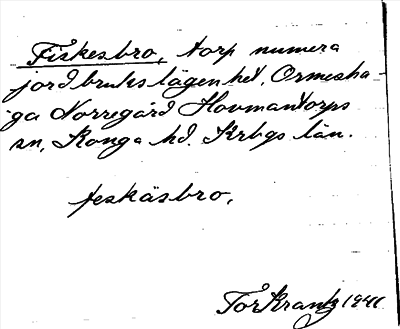 Fiskesbro, torp numera
jordbrukslägenhet, Ormesha-
ga Norregård Hovmantorps
sn, Konga hd. Krbgs län.
feskäsbro,
Tor Krantz 1941